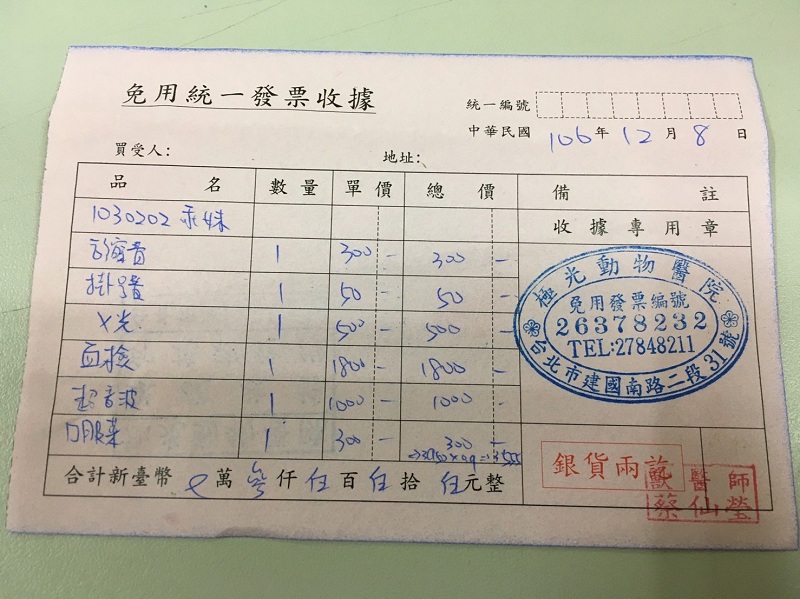 免用統一發票收據
統一編號
中華民國 106 年 12 月 8 日
買受人： 地址：
品名 數量 單價 總價 備註
1030202 乖妹
收據專用章
診療費 1 300 - 300 -
掛號費 1 50 - 50 -
X光 1 500 - 500 -
血檢 1 1800 - 1800 -
超音波 1 1000 - 1000 -
口服藥 1 300 - 300 -
→3950×0.9=3555
合計新臺幣 萬 參仟 伍百 伍拾 伍元整
極光動物醫院
免用發票編號
26378232
TEL:27848211
台北市建國南路二段31號
銀貨兩訖
獸醫師
蔡仙瑩